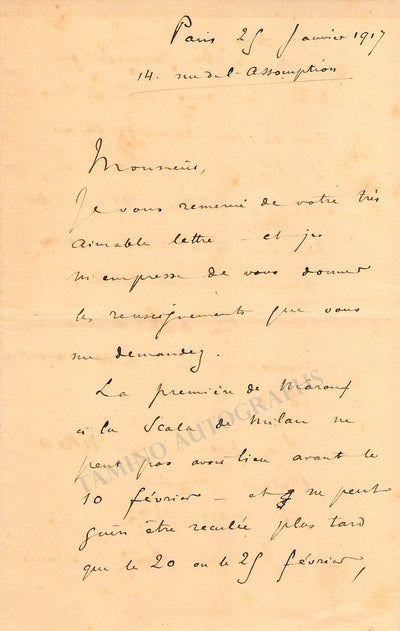 Paris 25 Janvier 1917
14. rue de l'Assomption
Monsieur,
Je vous remercie de votre très
aimable lettre - et je
m'empresse de vous donner
les renseignements que vous
me demandez.
La première de Marouf
à la Scala de Milan ne
peut pas avoir lieu avant le
10 février - et ne peut
guère être reculée plus tard
que le 20 ou le 25 février,
TAMINO AUTOGRAPHS